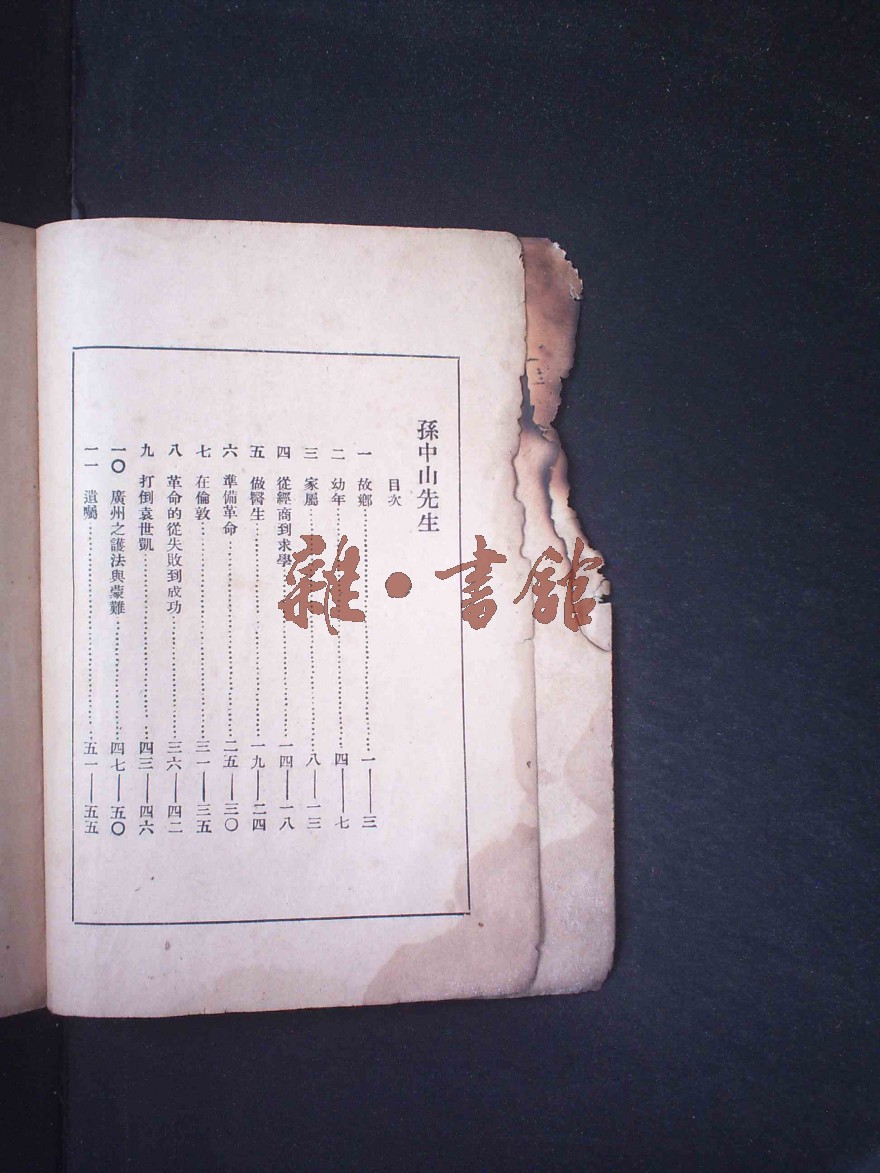 孫中山先生
目次
一 故鄉…………一——三
二 幼年…………四——七
三 家屬…………八——一三
四 從經商到求學…………一四——一八
五 做醫生…………一九——二四
六 準備革命…………二五——三〇
七 在倫敦…………三一——三五
八 革命的從失敗到成功…………三六——四二
九 打倒袁世凱…………四三——四六
一〇 廣州之護法與蒙難…………四七——五〇
一一 遺囑…………五一——五五
雜·書館